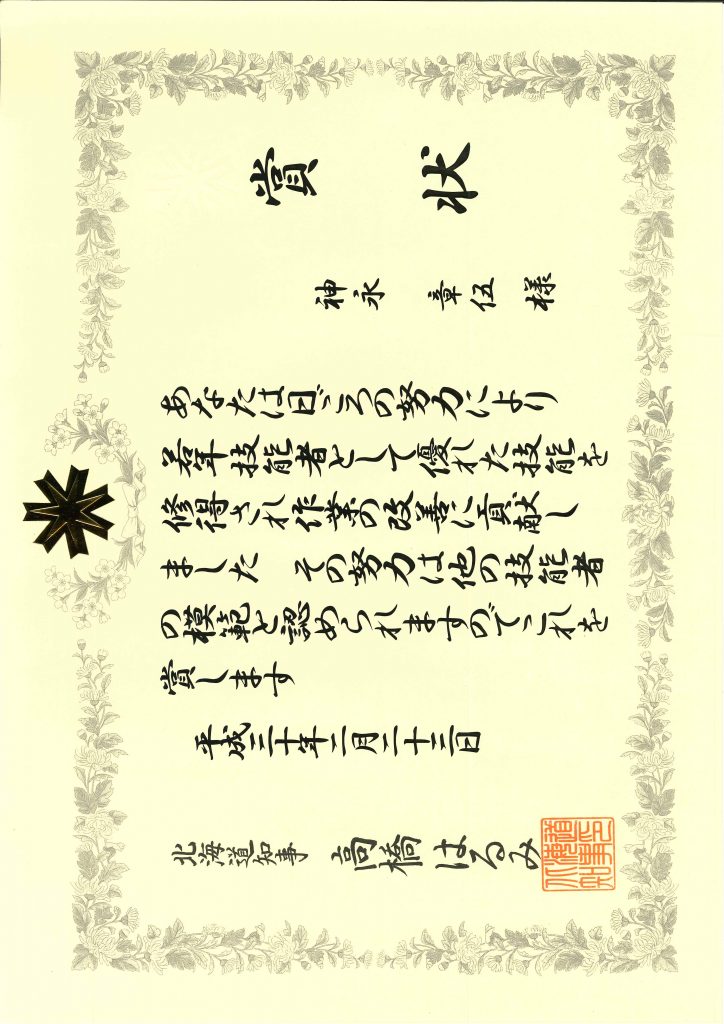 賞状
神永 章伍 様
あなたは日ごろの努力により
若年技能者として優れた技能を
修得され作業の改善に貢献し
ました その努力は他の技能者
の模範と認められますのでこれを
賞します
平成三十年二月二十三日
北海道知事 高橋はるみ
北海道知事之印